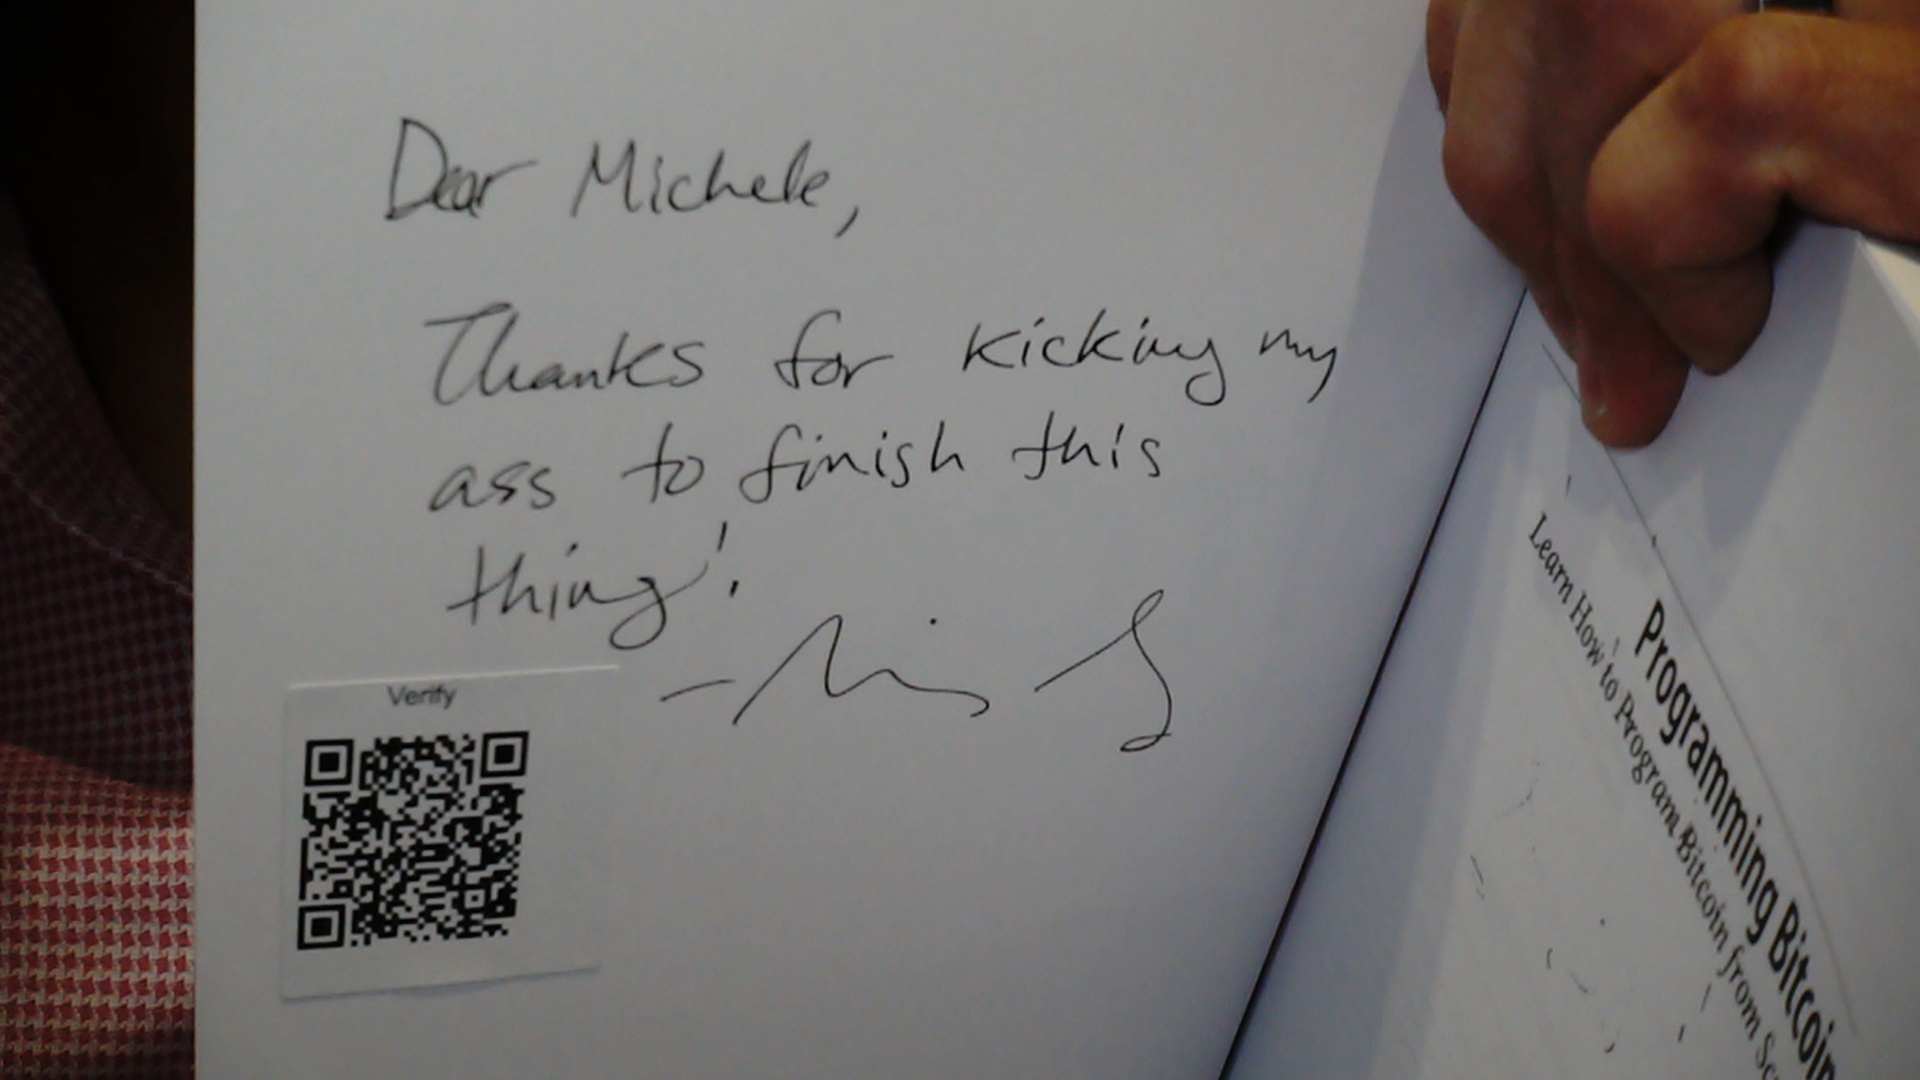 Dear Michele,
Thanks for kicking my
ass to finish this
thing!
Verify
Programming Bitcoin
Learn How to Program Bitcoin from